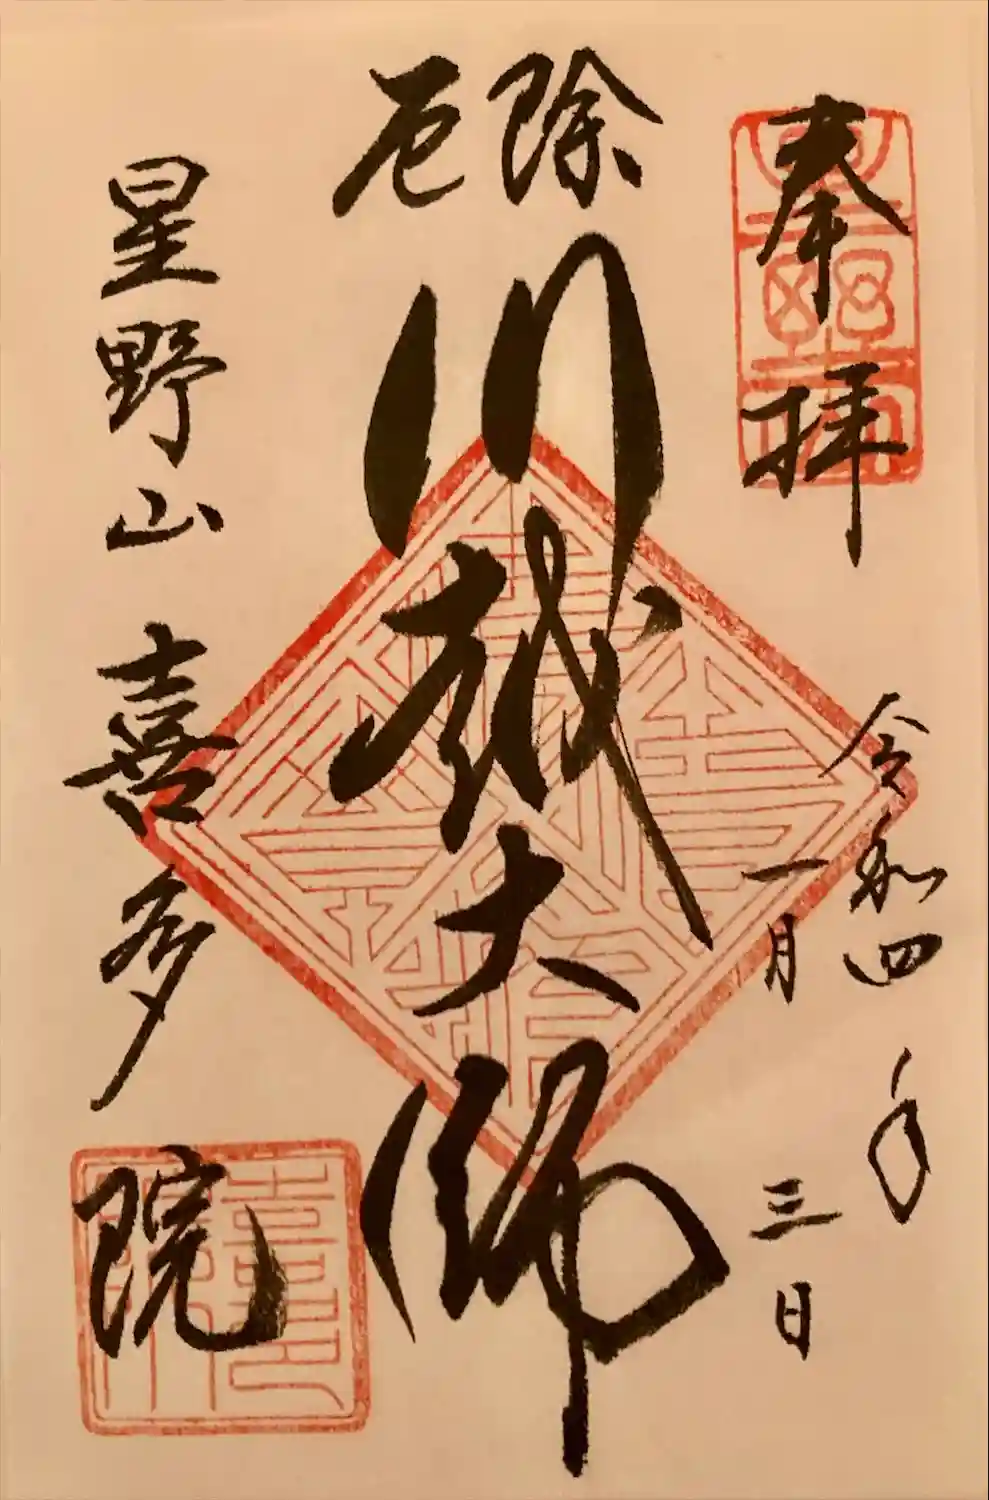 奉拝
令和四年
一月三日
除厄
川越大師
星野山 喜多院